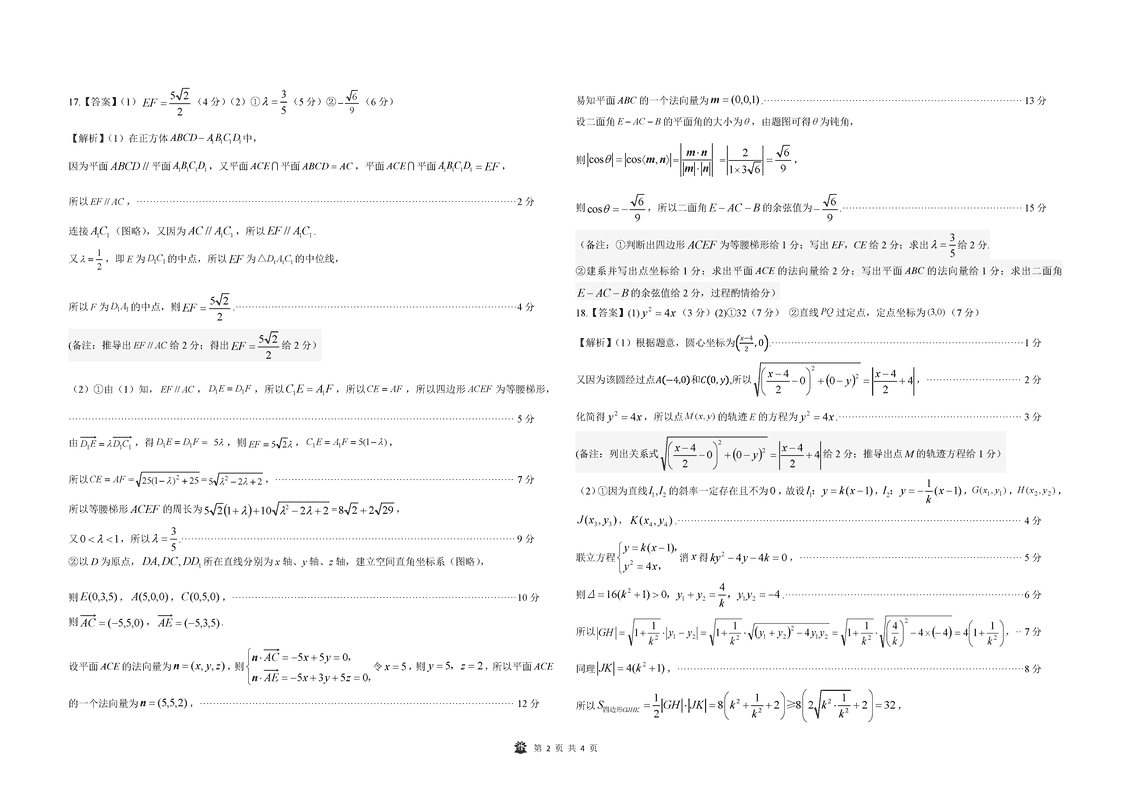 17.【答案】(1) EF = 5√2/2 (4 分)(2)①λ = 3/5 (5 分)②−√6/9 (6 分)
【解析】(1)在正方体 ABCD − A₁B₁C₁D₁ 中,
因为平面 ABCD // 平面 A₁B₁C₁D₁,又平面 ACE ∩ 平面 ABCD = AC,平面 ACE ∩ 平面 A₁B₁C₁D₁ = EF,
所以 EF // AC,……2 分
连接 A₁C₁(图略),又因为 AC // A₁C₁,所以 EF // A₁C₁.
又 λ = 1/2,即 E 为 D₁C₁ 的中点,所以 EF 为 △D₁A₁C₁ 的中位线,
所以 F 为 D₁A₁ 的中点,则 EF = 5√2/2.……4 分
(备注:推导出 EF // AC 给 2 分;得出 EF = 5√2/2 给 2 分)
(2)①由(1)知,EF // AC,D₁E = D₁F,所以 C₁E = A₁F,所以 CE = AF,所以四边形 ACEF 为等腰梯形,
……5 分
由 D₁E→ = λD₁C₁→,得 D₁E = D₁F = 5λ,则 EF = 5√2λ,C₁E = A₁F = 5(1−λ),
所以 CE = AF = √(25(1−λ)² + 25) = 5√(λ² − 2λ + 2),……7 分
所以等腰梯形 ACEF 的周长为 5√2(1+λ) + 10√(λ² − 2λ + 2) = 8√2 + 2√29,
又 0 < λ < 1,所以 λ = 3/5.……9 分
②以 D 为原点,DA, DC, DD₁ 所在直线分别为 x 轴、y 轴、z 轴,建立空间直角坐标系(图略),
则 E(0,3,5),A(5,0,0),C(0,5,0),……10 分
则 AC→ = (−5,5,0),AE→ = (−5,3,5).
设平面 ACE 的法向量为 n = (x, y, z),则 { n·AC→ = −5x + 5y = 0, n·AE→ = −5x + 3y + 5z = 0, 令 x = 5,则 y = 5,z = 2,所以平面 ACE
的一个法向量为 n = (5,5,2),……12 分
易知平面 ABC 的一个法向量为 m = (0,0,1).……13 分
设二面角 E − AC − B 的平面角的大小为 θ,由题图可得 θ 为钝角,
则 |cosθ| = |cos⟨m, n⟩| = |m·n / |m|·|n|| = |2/(1×3√6)| = √6/9,
则 cosθ = −√6/9,所以二面角 E − AC − B 的余弦值为 −√6/9.……15 分
(备注:①判断出四边形 ACEF 为等腰梯形给 1 分;写出 EF,CE 给 2 分;求出 λ = 3/5 给 2 分.
②建系并写出点坐标给 1 分;求出平面 ACE 的法向量给 2 分;写出平面 ABC 的法向量给 1 分;求出二面角
E − AC − B 的余弦值给 2 分,过程酌情给分)
18.【答案】(1) y² = 4x (3 分)(2)①32(7 分) ②直线 PQ 过定点,定点坐标为 (3,0)(7 分)
【解析】(1)根据题意,圆心坐标为((x−4)/2, 0).……1 分
又因为该圆经过点A(−4,0)和C(0, y),所以 √(((x−4)/2 − 0)² + (0 − y)²) = |(x−4)/2 + 4|,……2 分
化简得 y² = 4x,所以点 M(x, y) 的轨迹 E 的方程为 y² = 4x.……3 分
(备注:列出关系式 √(((x−4)/2 − 0)² + (0 − y)²) = |(x−4)/2 + 4| 给 2 分;推导出点 M 的轨迹方程给 1 分)
(2)①因为直线 l₁, l₂ 的斜率一定存在且不为 0,故设 l₁:y = k(x−1),l₂:y = −1/k(x−1),G(x₁, y₁),H(x₂, y₂),
J(x₃, y₃),K(x₄, y₄).……4 分
联立方程 { y = k(x−1), y² = 4x, 消 x 得 ky² − 4y − 4k = 0,……5 分
则 Δ = 16(k² + 1) > 0,y₁ + y₂ = 4/k,y₁y₂ = −4.……6 分
所以 |GH| = √(1 + 1/k²)·|y₁ − y₂| = √(1 + 1/k²)·√((y₁ + y₂)² − 4y₁y₂) = √(1 + 1/k²)·√((4/k)² − 4×(−4)) = 4(1 + 1/k²),‥7 分
同理 |JK| = 4(k² + 1),……8 分
所以 S四边形GJHK = 1/2|GH|·|JK| = 8(k² + 1/k² + 2) ≥ 8(2√(k²·1/k²) + 2) = 32,
第 2 页 共 4 页